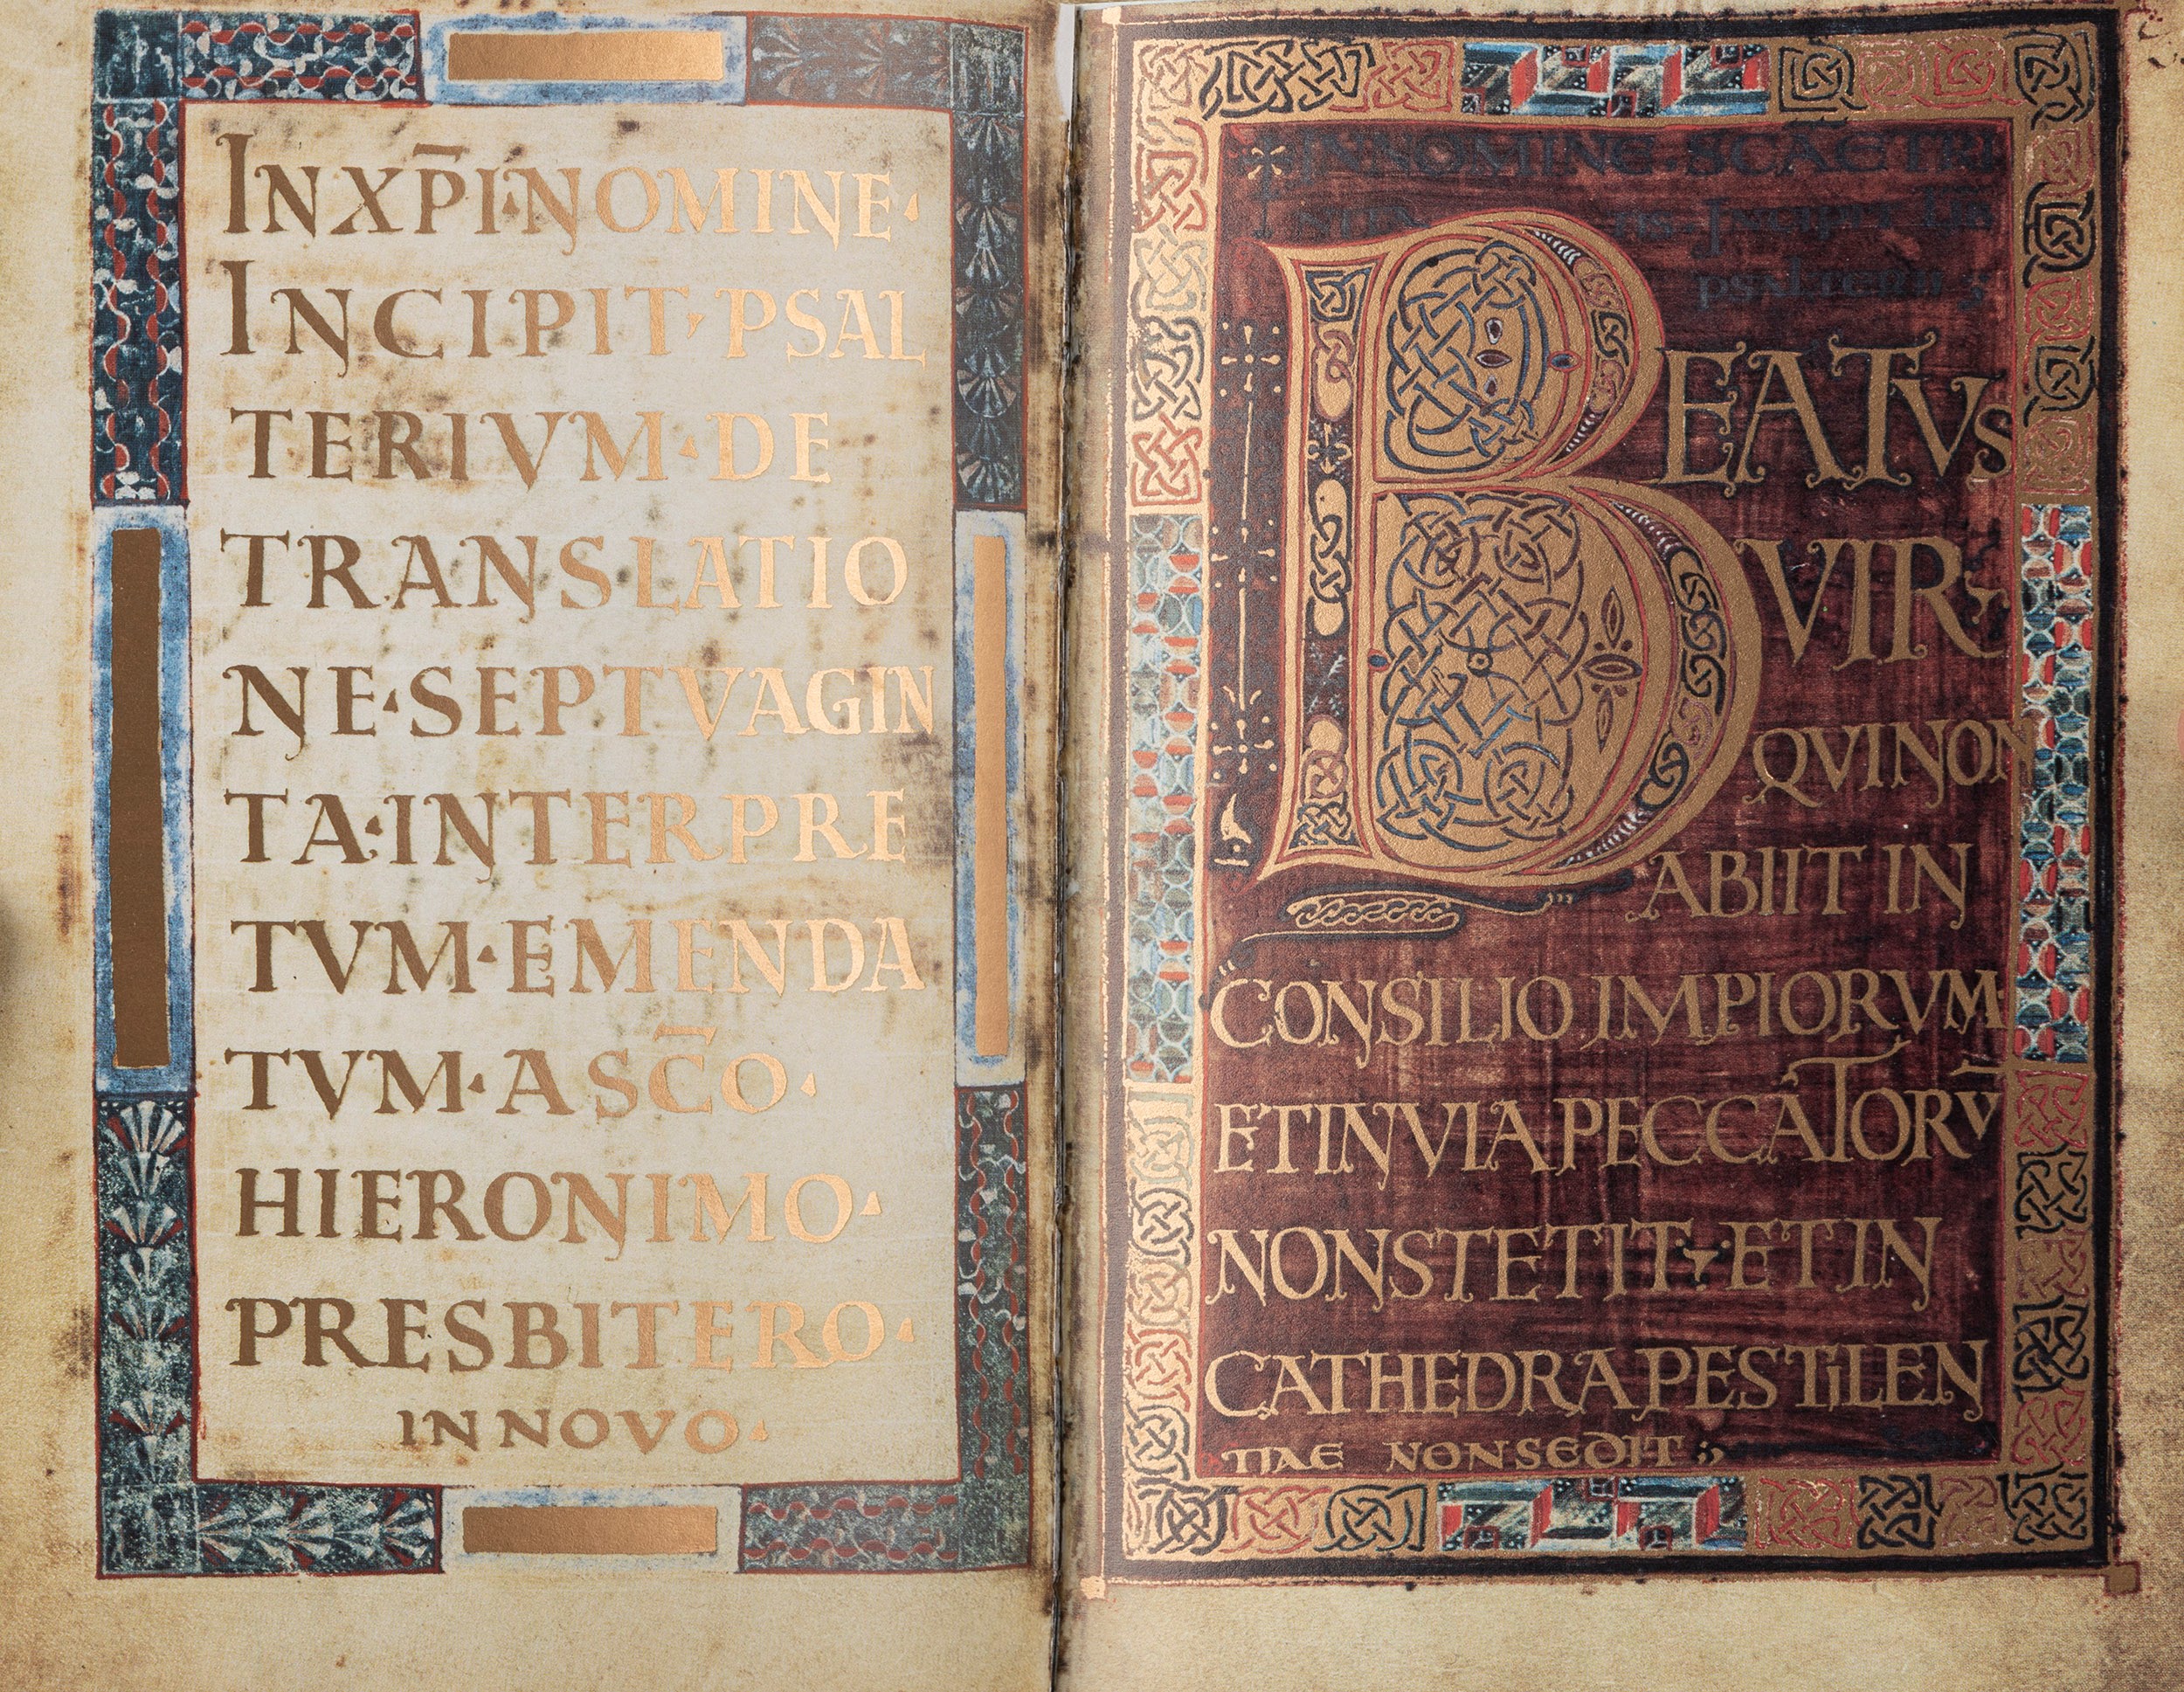 INXP̄I NOMINE·
INCIPIT· PSAL
TERIVM· DE
TRANSLATIO
NE· SEPTVAGIN
TA· INTERPRE
TVM· EMENDA
TVM· A SC̄O·
HIERONIMO·
PRESBITERO·
IN NOVO·
IN NOMINE· SCAE TRI
NITA TIS· INCIPIT LIB
PSALTERII
BEATVS
VIR·
QVI NON
ABIIT IN
CONSILIO IMPIORVM·
ET IN VIA PECCATORV̄
NON STETIT· ET IN
CATHEDRA PESTILEN
TIAE NON SEDIT:,